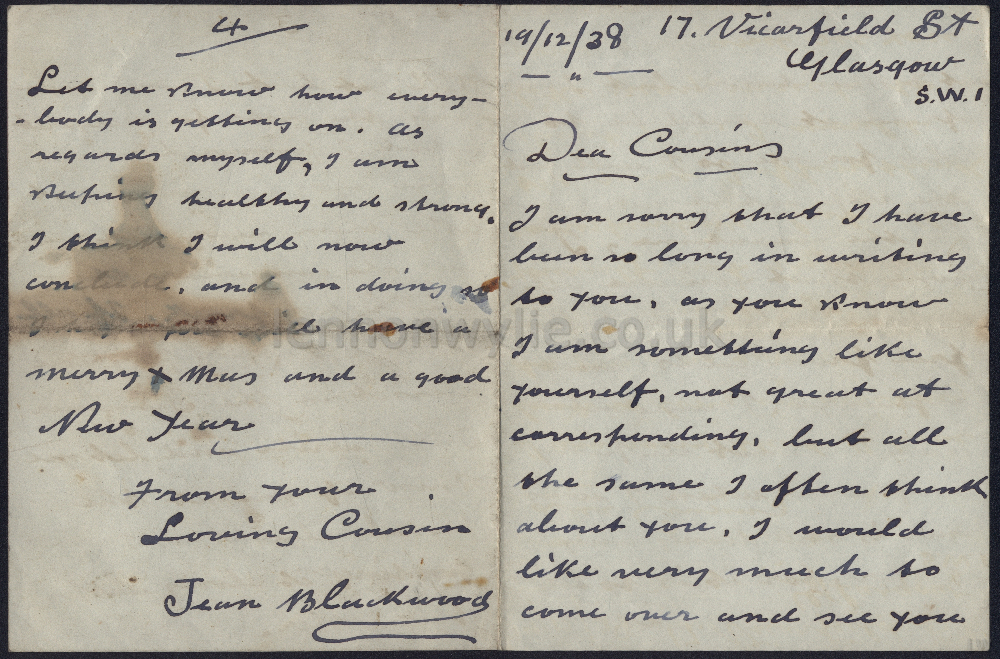 19/12/38 17. Vicarfield St
Glasgow
S.W.1
Dea Cousins
I am sorry that I have
been so long in writing
to you, as you know
I am something like
yourself, not great at
corresponding, but all
the same I often think
about you, I would
like very much to
come over and see you
4
Let me know how every-
-body is getting on. As
regards myself, I am
keeping healthy and strong.
I think I will now
conclude, and in doing so
I have a
merry X Mas and a good
New Year
From your
Loving Cousin
Jean Blackwood
lennonwylie.co.uk